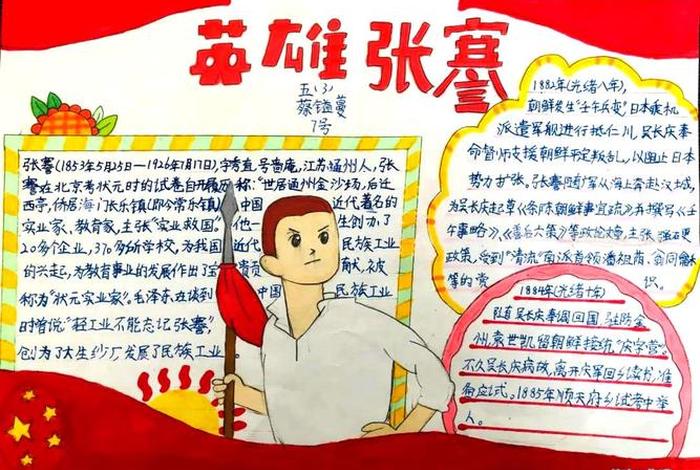 英雄张謇
五(3)
蔡镒蔓
7号
张謇(1853年5月25日—1926年7月17日),字季直,号啬庵,江苏通州人,张
謇在北京考状元时的试卷自开 称:"世居通州金沙场,后迁
西亭,侨居海门长乐镇(即今常乐镇) 中国 近代著名的
实业家、教育家,主张"实业救国。 他一 生创办了
20多个企业,370多所学校,为我国 近代 民族工业
的兴起,为教育事业的发展作出了宝 贵贡 献,被
称为"状元实业家"。毛泽东在谈到 中国 民族工业
时曾说:"轻工业不能忘记张謇"
创办了大生纱厂发展了民族工业
1882年(光绪八年),
朝鲜发生"壬午兵变",日本乘机
派遣军舰进行抵仁川,吴长庆奉
命督师支援朝鲜平定叛乱,以阻止日本
势力扩张。张謇随庆军从海上奔赴汉城,
为吴长庆起草《条陈朝鲜事宜疏》并撰写《壬
午事略》、《善后六策》等政论文章,主张强硬
政策,受到"清流"南派首领潘祖荫、翁同龢
等的赏 识。
1884年(光绪十年)
随吴长庆奉调回国,驻防金
州,袁世凯留朝鲜接统"庆字营"。
不久吴长庆病故,离开庆军回乡读书,准
备应试。1885年顺天府乡试考中举
人。